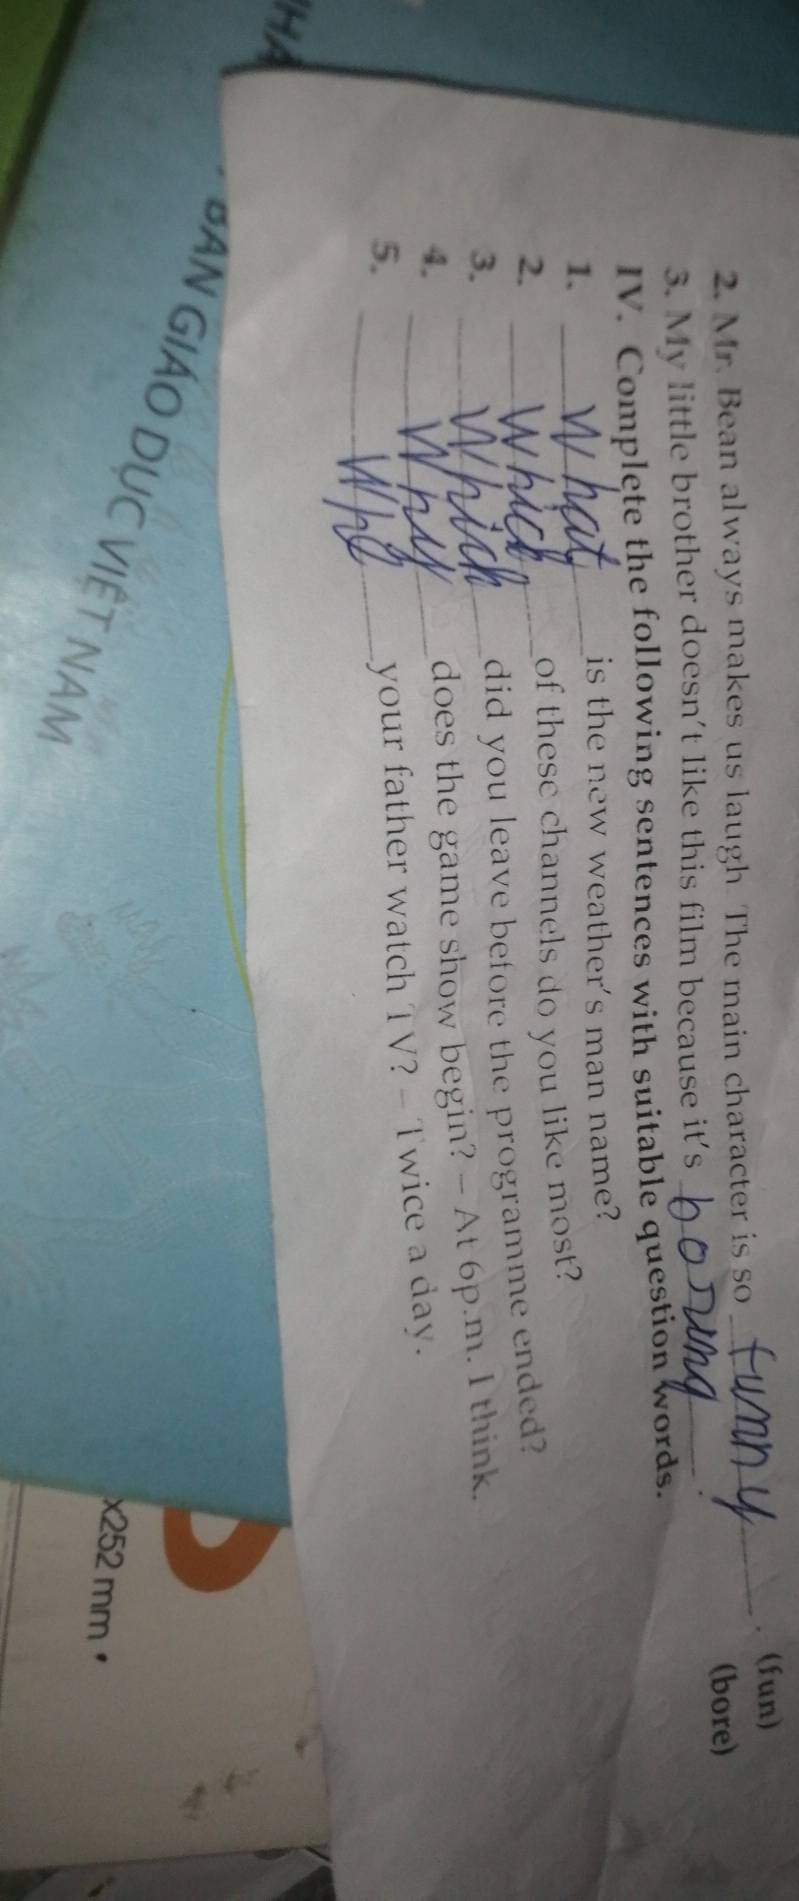 2. Mr. Bean always makes us laugh The main character is so funny. (fun)
3. My little brother doesn't like this film because it's boring. (bore)
IV. Complete the following sentences with suitable question words.
1. What is the new weather's man name?
2. Which of these channels do you like most?
3. Which did you leave before the programme ended?
4. Why does the game show begin? – At 6p.m. I think.
5. Who your father watch TV? – Twice a day.
BAN GIÁO DỤC VIỆT NAM
x252 mm •